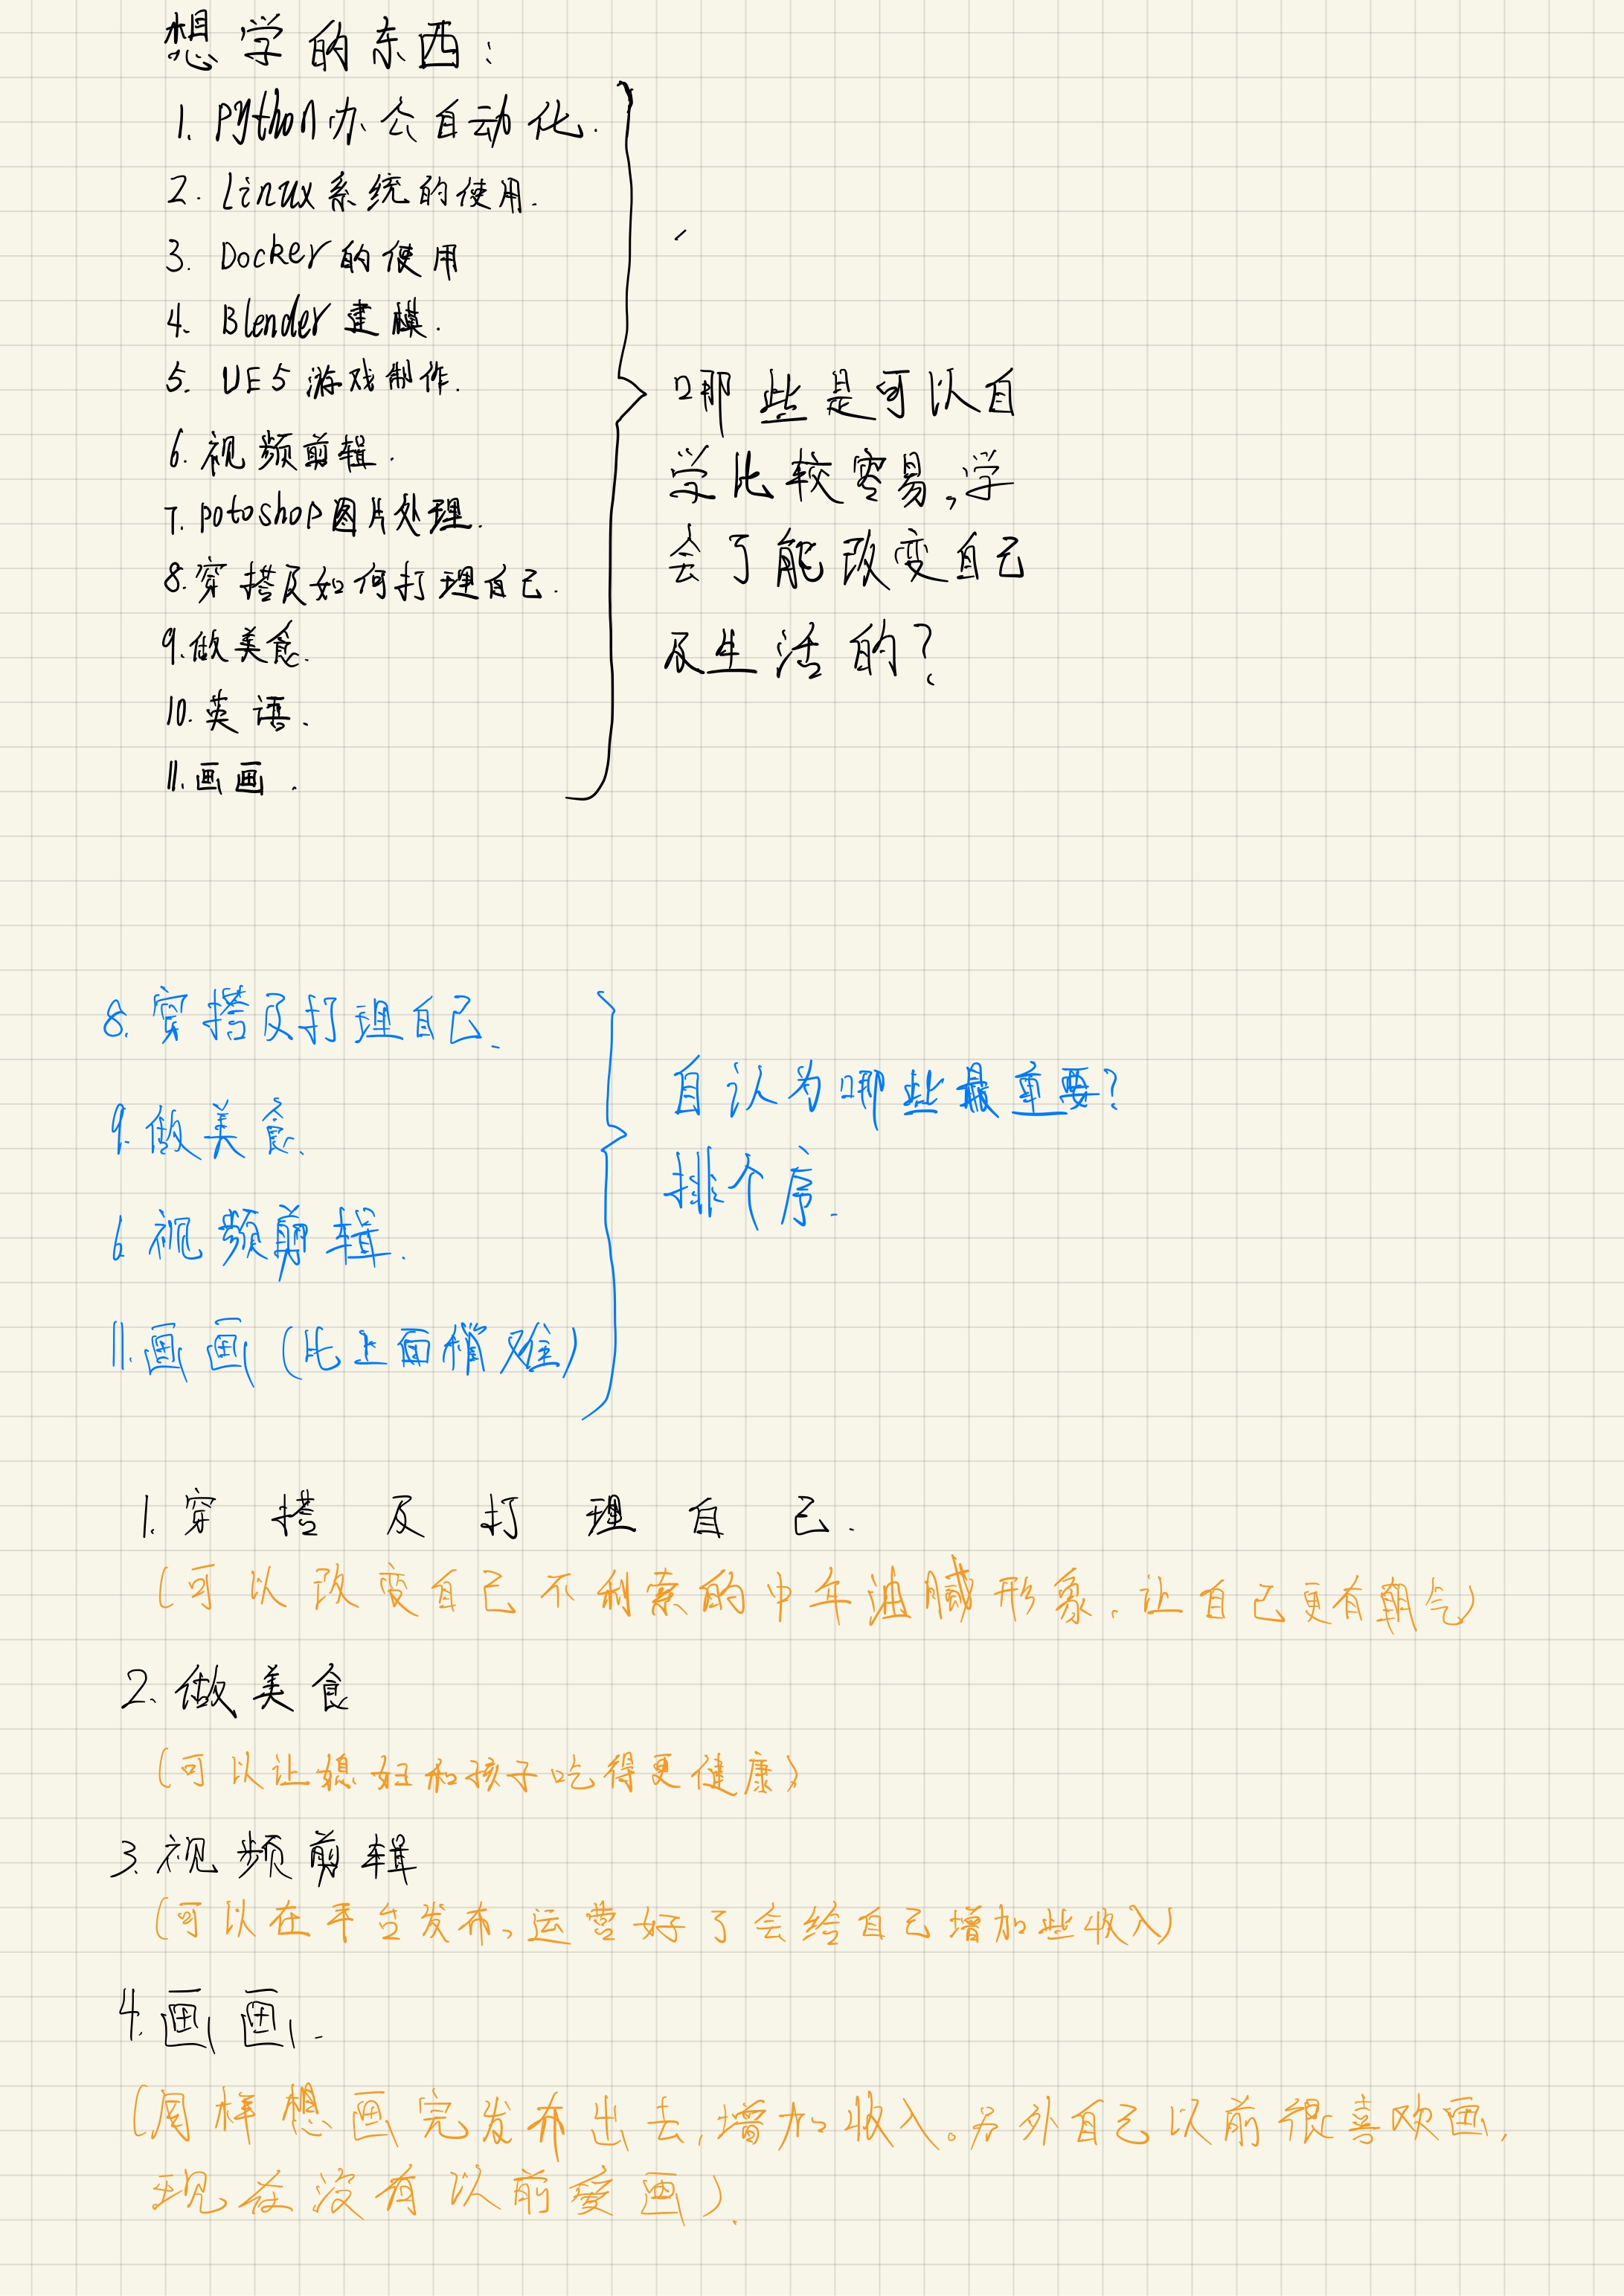 想学的东西:
1. python办公自动化.
2. Linux系统的使用.
3. Docker的使用
4. Blender建模.
5. UE5游戏制作.
6. 视频剪辑.
7. potoshop图片处理.
8. 穿搭及如何打理自己.
9. 做美食.
10. 英语.
11. 画画.
哪些是可以自
学比较容易,学
会了能改变自己
及生活的?
8. 穿搭及打理自己.
9. 做美食.
6. 视频剪辑.
11. 画画(比上面稍难)
自认为哪些最重要?
排个序.
1. 穿搭及打理自己.
(可以改变自己不利索的中年油腻形象,让自己更有朝气)
2. 做美食
(可以让媳妇和孩子吃得更健康)
3. 视频剪辑
(可以在平台发布,运营好了会给自己增加些收入)
4. 画画.
(同样想画完发布出去,增加收入。另外自己以前很喜欢画,
现在没有以前爱画).